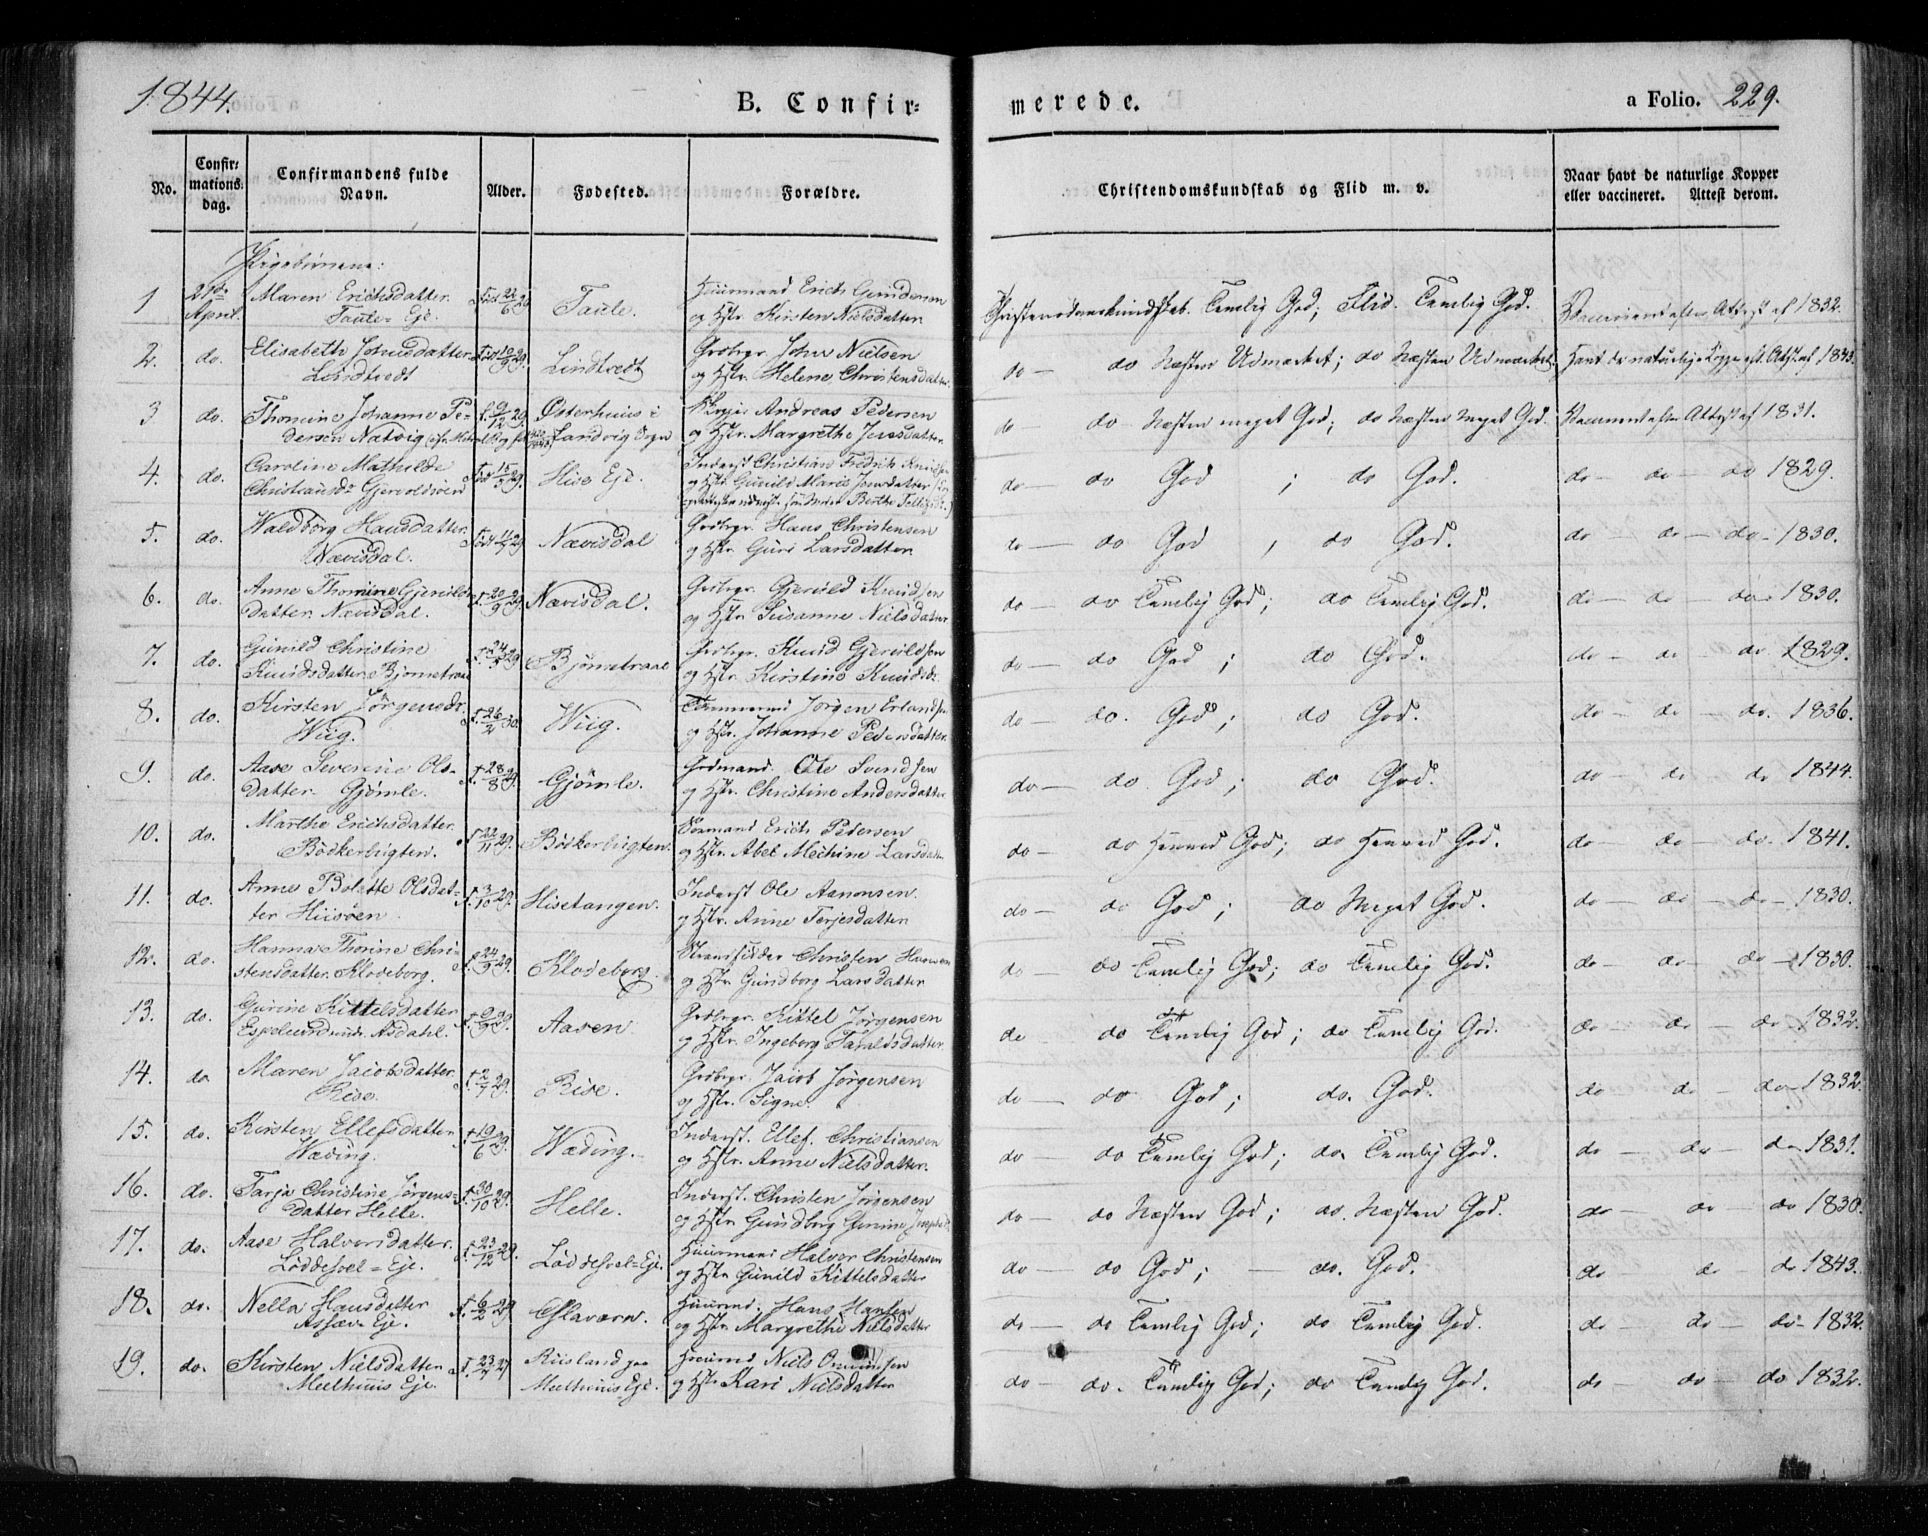 1844.
B. Confir=
merede.
a Folio. 229.
No.
Confir=
mations=
dag.
Confirmandens fulde
Navn.
Alder.
Fødested.
Forældre.
Christendomskundskab og Flid m. v.
Naar havt de naturlige Kopper
eller vaccineret. Attest derom.
Pigebörnene:
1 21de April. Maren Erichsdatter Taule-Eje. Födt 22/6 29 Taule. Huurmand Erich Gundersen og Hstr. Kirsten Nielsdatter Christendomskundskab. Temlig God; Flid. Temlig God. Vaccineret efter Attest af 1832.
2. do. Elisabeth Johnsdatter Lindtvedt Födt 29. Lindtvedt Grdbrgr. John Nielsen og Hstr. Helene Christensdatter do — do Næsten Udmærket; do Næsten Udmærket; Havt de naturlige Kopper eft. Attst. af 1843.
3 do. Thomine Johanne Pedersen Natvig f. 9/12 29. Østerhuus i Landvig Sogn Andreas Pedersen og Hstr. Margrethe Jensdatter do do Næsten meget God; do Næsten Meget God. Vaccineret efter Attest af 1831.
4. do. Caroline Mathilde Christiansdr Gjervoldsöen Födt 15/5 29. Hisö Eje. Inderst Christian Fredrik Knudsen og Hstr. Gunild Marie Jonsdatter do — do God ; do God. do — do — do 1829.
5. do. Waldborg Hansdatter Nævisdal. Födt 29 Nævisdal Grdbrgr. Hans Christensen og Hstr. Guri Larsdatter. do — do God , do God. do — do — do — 1830.
6. do. Anne Thomine Gjervoldsdatter Nævisdal. f. 20/9 29 Nævisdal. Grdbrgr. Gjervold Knudsen og Hstr. Susanne Nielsdatter do — do Temlig God; do Temlig God. do — do — do — 1830.
7. do. Gunild Christine Knudsdatter Bjørnetraae f. 24/5 29 Bjørnetraae Grdbrgr. Knud Gjervoldsen og Hstr. Kirstine Knudsdr. do — do God; do God. do — do — do 1829.
8. do. Kirsten Jörgensdr. Wiig. f. 26/2 30. Wiig. Tømmermd Jörgen Erlandsen og Hstr. Johanne Pedersdatter. do — do. God; do God. do — do — do. 1836.
9. do. Aase Severine Olsdatter Gjömle. f. 28/8 29. Gjömle. Grdmand. Ole Svendsen og Hstr. Christine Andersdatter do — do. God; do God. do — do — do 1844.
10. do. Marthe Erichsdatter. Bödkerbugten. f. 22/11 29. Bödkerbugten. Sömand Erich Pedersen og Hstr. Abel Mechine Larsdatter do — do Henved God; do Henved God. do — do — do. 1841.
11. do. Anne Bolette Olsdatter Hiisöen. f. 3/10 29. Hisetangen. Inderst Ole Aanonsen. og Hstr. Anne Terjesdatter do — do God; do Meget God. do — do — do — 1830.
12. do. Hanna Thorine Christensdatter Klodeborg. f. 24/9 29. Klodeborg. Strandsidder Christen Hansen og Hstr. Gundborg Larsdatter do — do Temlig God; do Temlig God. do — do — do — 1830.
13. do. Gurine Kittelsdatter Espelund under Asdahl. f. 29. Aasen. Grdbrgr. Kittel Jörgensen og Hstr. Ingeborg Taraldsdatter. do do Temlig God; do Temlig God. do — do — do — 1832.
14. do Maren Jacobsdatter. Rise. f. 2/7 29. Rise. Grdbrgr. Jacob Jörgensen og Hstr. Signe. do — do God; do. God. do do — do — 1832.
15. do. Kirsten Ellefsdatter Wæding. f. 19/6 29. Wæding. Inderst. Ellef. Christiansen og Hstr. Anne Nielsdatter. do — do Temlig God; do. Temlig God. do — do — do — 1831.
16. do. Tarja Christine Jörgensdatter Helle. f. 30/10 29. Helle. Inderst. Christen Jörgensen og Hstr. Gundborg Gurine do — do Næsten God; do. Næsten God. do — do — do 1830.
17. do. Aase Halvorsdatter. Löddesvel=Eje. f. 23/12 29. Löddesvel=Eje. Huurmand Halvor Christensen og Hstr Gunild Kittelsdatter do — do God; — do. God. do do — do 1843.
18. do. Nella Hansdatter Assæv Eje. f. 6/2 29. Glaværn. Huurmd. Hans Hansen og Hstr. Margrethe Nielsdatter do — do Temlig God; do Temlig God. do — do — do — 1832.
19. do. Kirsten Nielsdatter Meelhuus Eje. f. 23/7 29 Riisland paa Meelhuus Eje. Huurmd Niels og Hstr Kari Nielsdatter do — do. Temlig God; do Temlig God. do — do — do 1832.